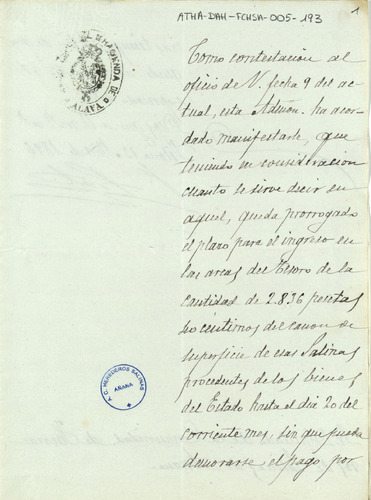 ATHA-DAH-FCHSA-005-193
1
HACIENDA DE
ALAVA
Como contestacion al
oficio de V. fecha 9 del ac
tual, esta Admon. ha acor
dado manifestarle, que
teniendo en consideracion
cuanto se sirve decir en
aquel, queda prorrogado
el plazo para el ingreso en
las arcas del Tesoro de la
cantidad de 2.836 pesetas
centimos del canon de
superficie de esas Salinas
procedentes de los bienes
del Estado hasta el dia 20 del
corriente mes, sin que pueda
demorarse el pago por
HEREDEROS SALINAS
AÑANA